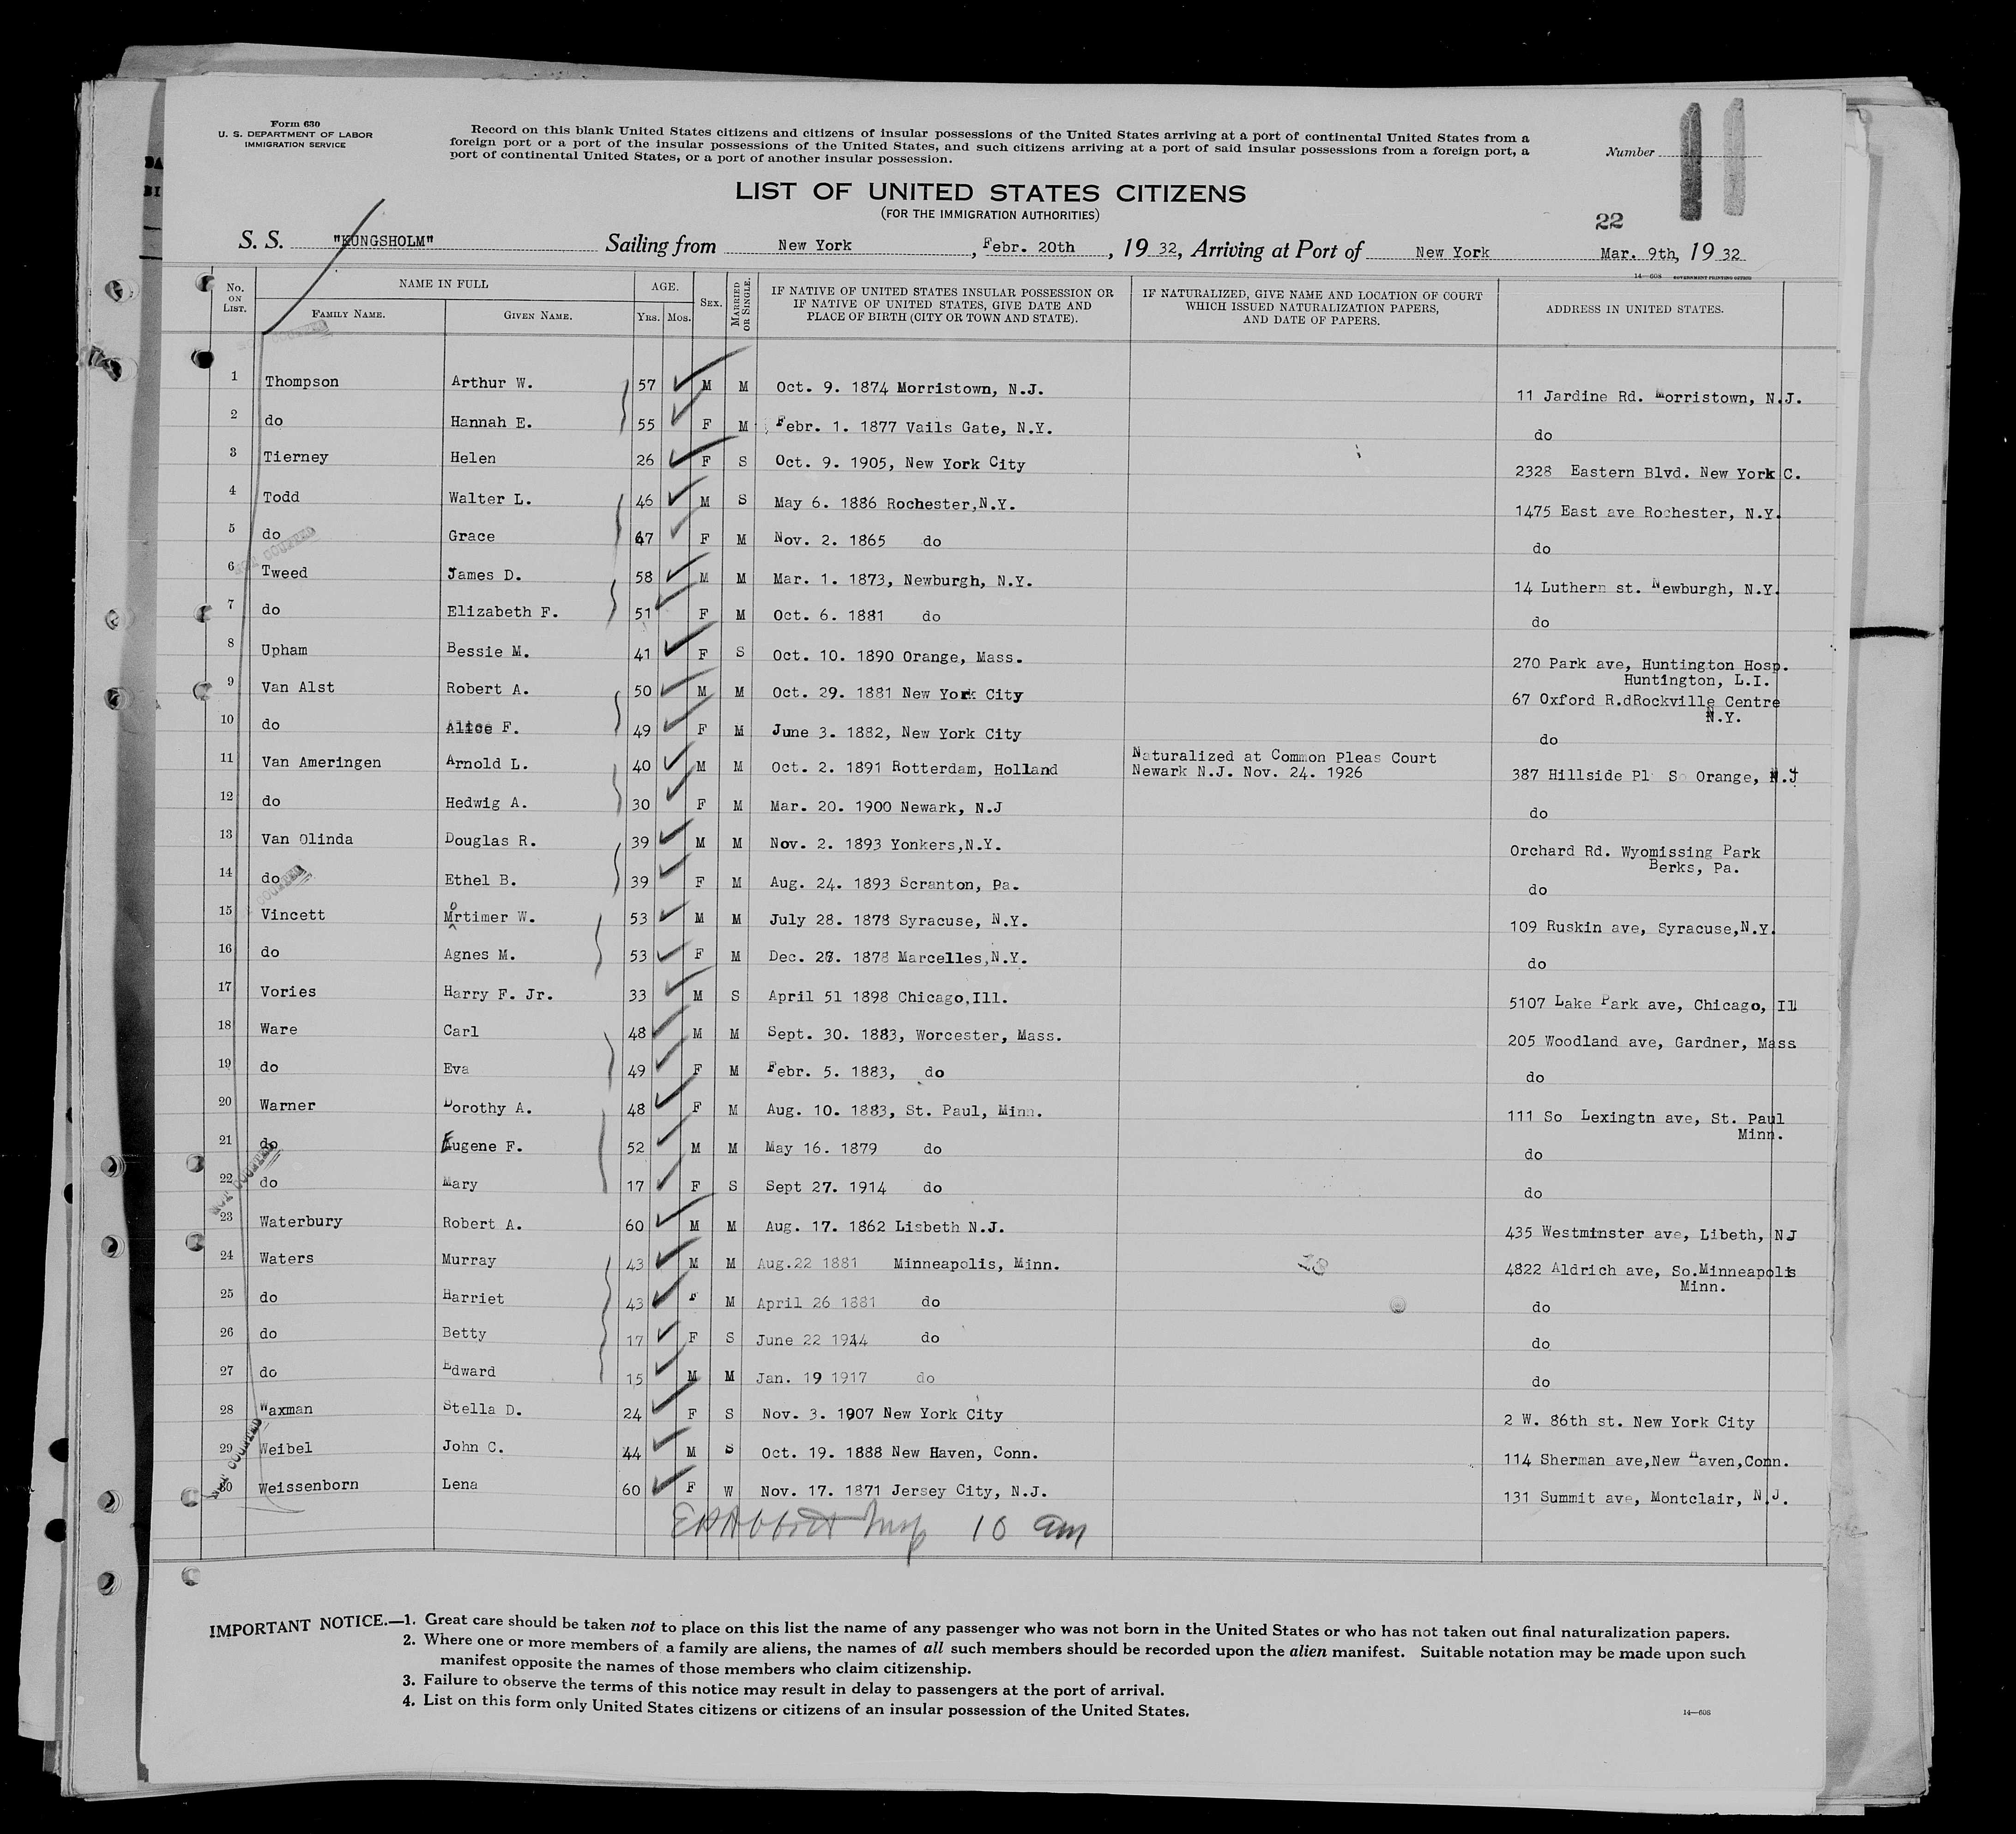 Form 630
U. S. DEPARTMENT OF LABOR
IMMIGRATION SERVICE
Record on this blank United States citizens and citizens of insular possessions of the United States arriving at a port of continental United States from a
foreign port or a port of the insular possessions of the United States, and such citizens arriving at a port of said insular possessions from a foreign port, a
port of continental United States, or a port of another insular possession.
Number
LIST OF UNITED STATES CITIZENS
(FOR THE IMMIGRATION AUTHORITIES)
22
S. S. "KUNGSHOLM" Sailing from New York, Febr. 20th, 1932, Arriving at Port of New York Mar. 9th, 1932
14—608 GOVERNMENT PRINTING OFFICE
No. ON LIST. NAME IN FULL FAMILY NAME. GIVEN NAME. AGE. YRS. MOS. SEX. MARRIED OR SINGLE. IF NATIVE OF UNITED STATES INSULAR POSSESSION OR IF NATIVE OF UNITED STATES, GIVE DATE AND PLACE OF BIRTH (CITY OR TOWN AND STATE). IF NATURALIZED, GIVE NAME AND LOCATION OF COURT WHICH ISSUED NATURALIZATION PAPERS, AND DATE OF PAPERS. ADDRESS IN UNITED STATES.
1 Thompson Arthur W. 57 M M Oct. 9. 1874 Morristown, N.J. 11 Jardine Rd. Morristown, N.J.
2 do Hannah E. 55 F M Febr. 1. 1877 Vails Gate, N.Y. do
3 Tierney Helen 26 F S Oct. 9. 1905, New York City 2328 Eastern Blvd. New York C.
4 Todd Walter L. 46 M S May 6. 1886 Rochester,N.Y. 1475 East ave Rochester, N.Y.
5 do Grace 67 F M Nov. 2. 1865 do do
6 Tweed James D. 58 M M Mar. 1. 1873, Newburgh, N.Y. 14 Luthern st. Newburgh, N.Y.
7 do Elizabeth F. 51 F M Oct. 6. 1881 do do
8 Upham Bessie M. 41 F S Oct. 10. 1890 Orange, Mass. 270 Park ave, Huntington Hosp.
Huntington, L.I.
9 Van Alst Robert A. 50 M M Oct. 29. 1881 New York City 67 Oxford R.dRockville Centre
N.Y.
10 do Alice F. 49 F M June 3. 1882, New York City do
11 Van Ameringen Arnold L. 40 M M Oct. 2. 1891 Rotterdam, Holland Naturalized at Common Pleas Court
Newark N.J. Nov. 24. 1926 387 Hillside Pl So Orange, N.J
12 do Hedwig A. 30 F M Mar. 20. 1900 Newark, N.J do
13 Van Olinda Douglas R. 39 M M Nov. 2. 1893 Yonkers,N.Y. Orchard Rd. Wyomissing Park
Berks, Pa.
14 do Ethel B. 39 F M Aug. 24. 1893 Scranton, Pa. do
15 Vincett Mortimer W. 53 M M July 28. 1878 Syracuse, N.Y. 109 Ruskin ave, Syracuse,N.Y.
16 do Agnes M. 53 F M Dec. 28. 1878 Marcelles,N.Y. do
17 Vories Harry F. Jr. 33 M S April 51 1898 Chicago,Ill. 5107 Lake Park ave, Chicago, Ill
18 Ware Carl 48 M M Sept. 30. 1883, Worcester, Mass. 205 Woodland ave, Gardner, Mass
19 do Eva 49 F M Febr. 5. 1883, do do
20 Warner Dorothy A. 48 F M Aug. 10. 1883, St. Paul, Minn. 111 So Lexingtn ave, St. Paul
Minn.
21 do Eugene F. 52 M M May 16. 1879 do do
22 do Mary 17 F S Sept 27. 1914 do do
23 Waterbury Robert A. 60 M M Aug. 17. 1862 Lisbeth N.J. 435 Westminster ave, Libeth, NJ
24 Waters Murray 43 M M Aug.22 1881 Minneapolis, Minn. 4822 Aldrich ave, So.Minneapolis
Minn.
25 do Harriet 43 F M April 26 1881 do do
26 do Betty 17 F S June 22 1914 do do
27 do Edward 15 M M Jan. 19 1917 do do
28 Waxman Stella D. 24 F S Nov. 3. 1907 New York City 2 W. 86th st. New York City
29 Weibel John C. 44 M S Oct. 19. 1888 New Haven, Conn. 114 Sherman ave,New Haven,Conn.
30 Weissenborn Lena 60 F W Nov. 17. 1871 Jersey City, N.J. 131 Summit ave, Montclair, N.J.
10 am
IMPORTANT NOTICE.—1. Great care should be taken not to place on this list the name of any passenger who was not born in the United States or who has not taken out final naturalization papers.
2. Where one or more members of a family are aliens, the names of all such members should be recorded upon the alien manifest. Suitable notation may be made upon such
manifest opposite the names of those members who claim citizenship.
3. Failure to observe the terms of this notice may result in delay to passengers at the port of arrival.
4. List on this form only United States citizens or citizens of an insular possession of the United States.
14—608